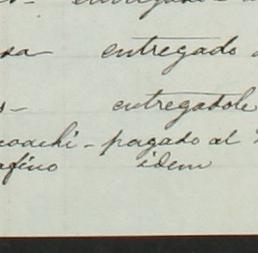 entregado
sa entregado
entregadole
oachi - pagado al
afino idem